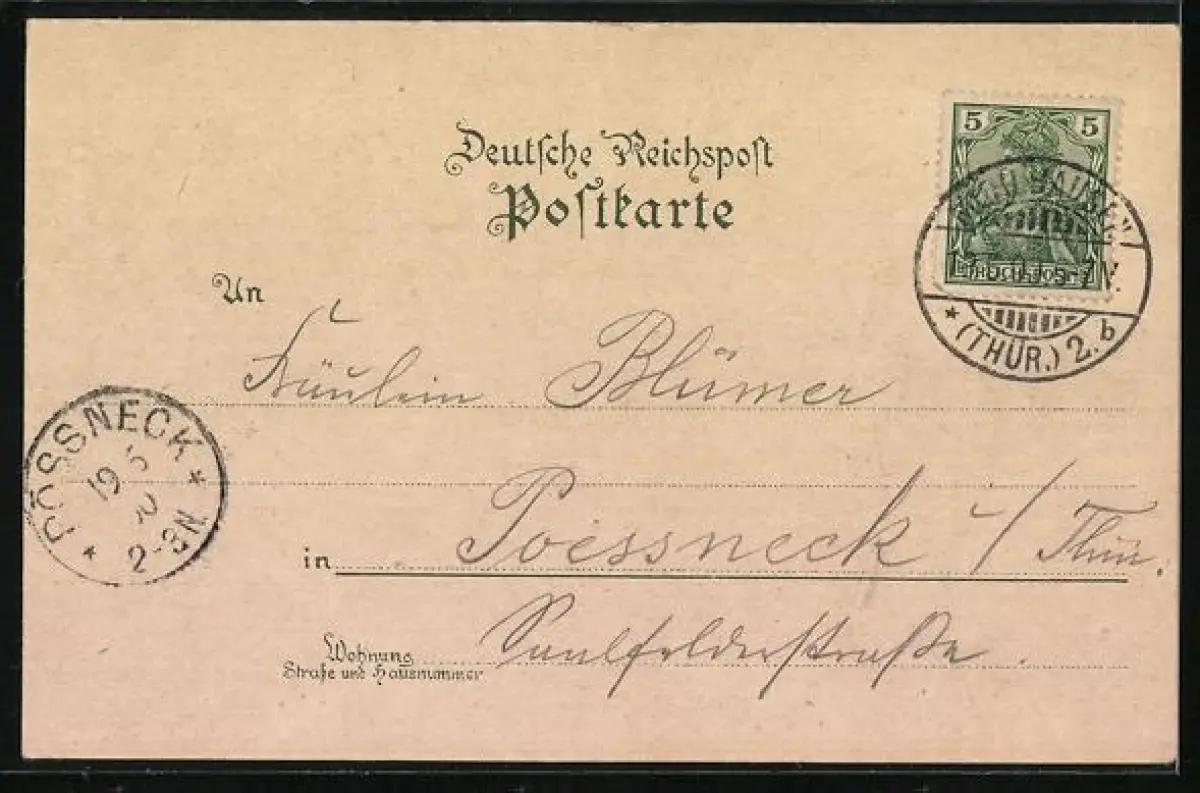 Deutsche Reichspost
Postkarte
5 5
REICHSPOST
5-7V.
* (THÜR.) 2. b
An
Fräulein Blümer
PÖSSNECK
19 5
2-3N
* *
in Poessneck i/Thür.
Wohnung
Straße und Hausnummer
Saalfelderstraße.